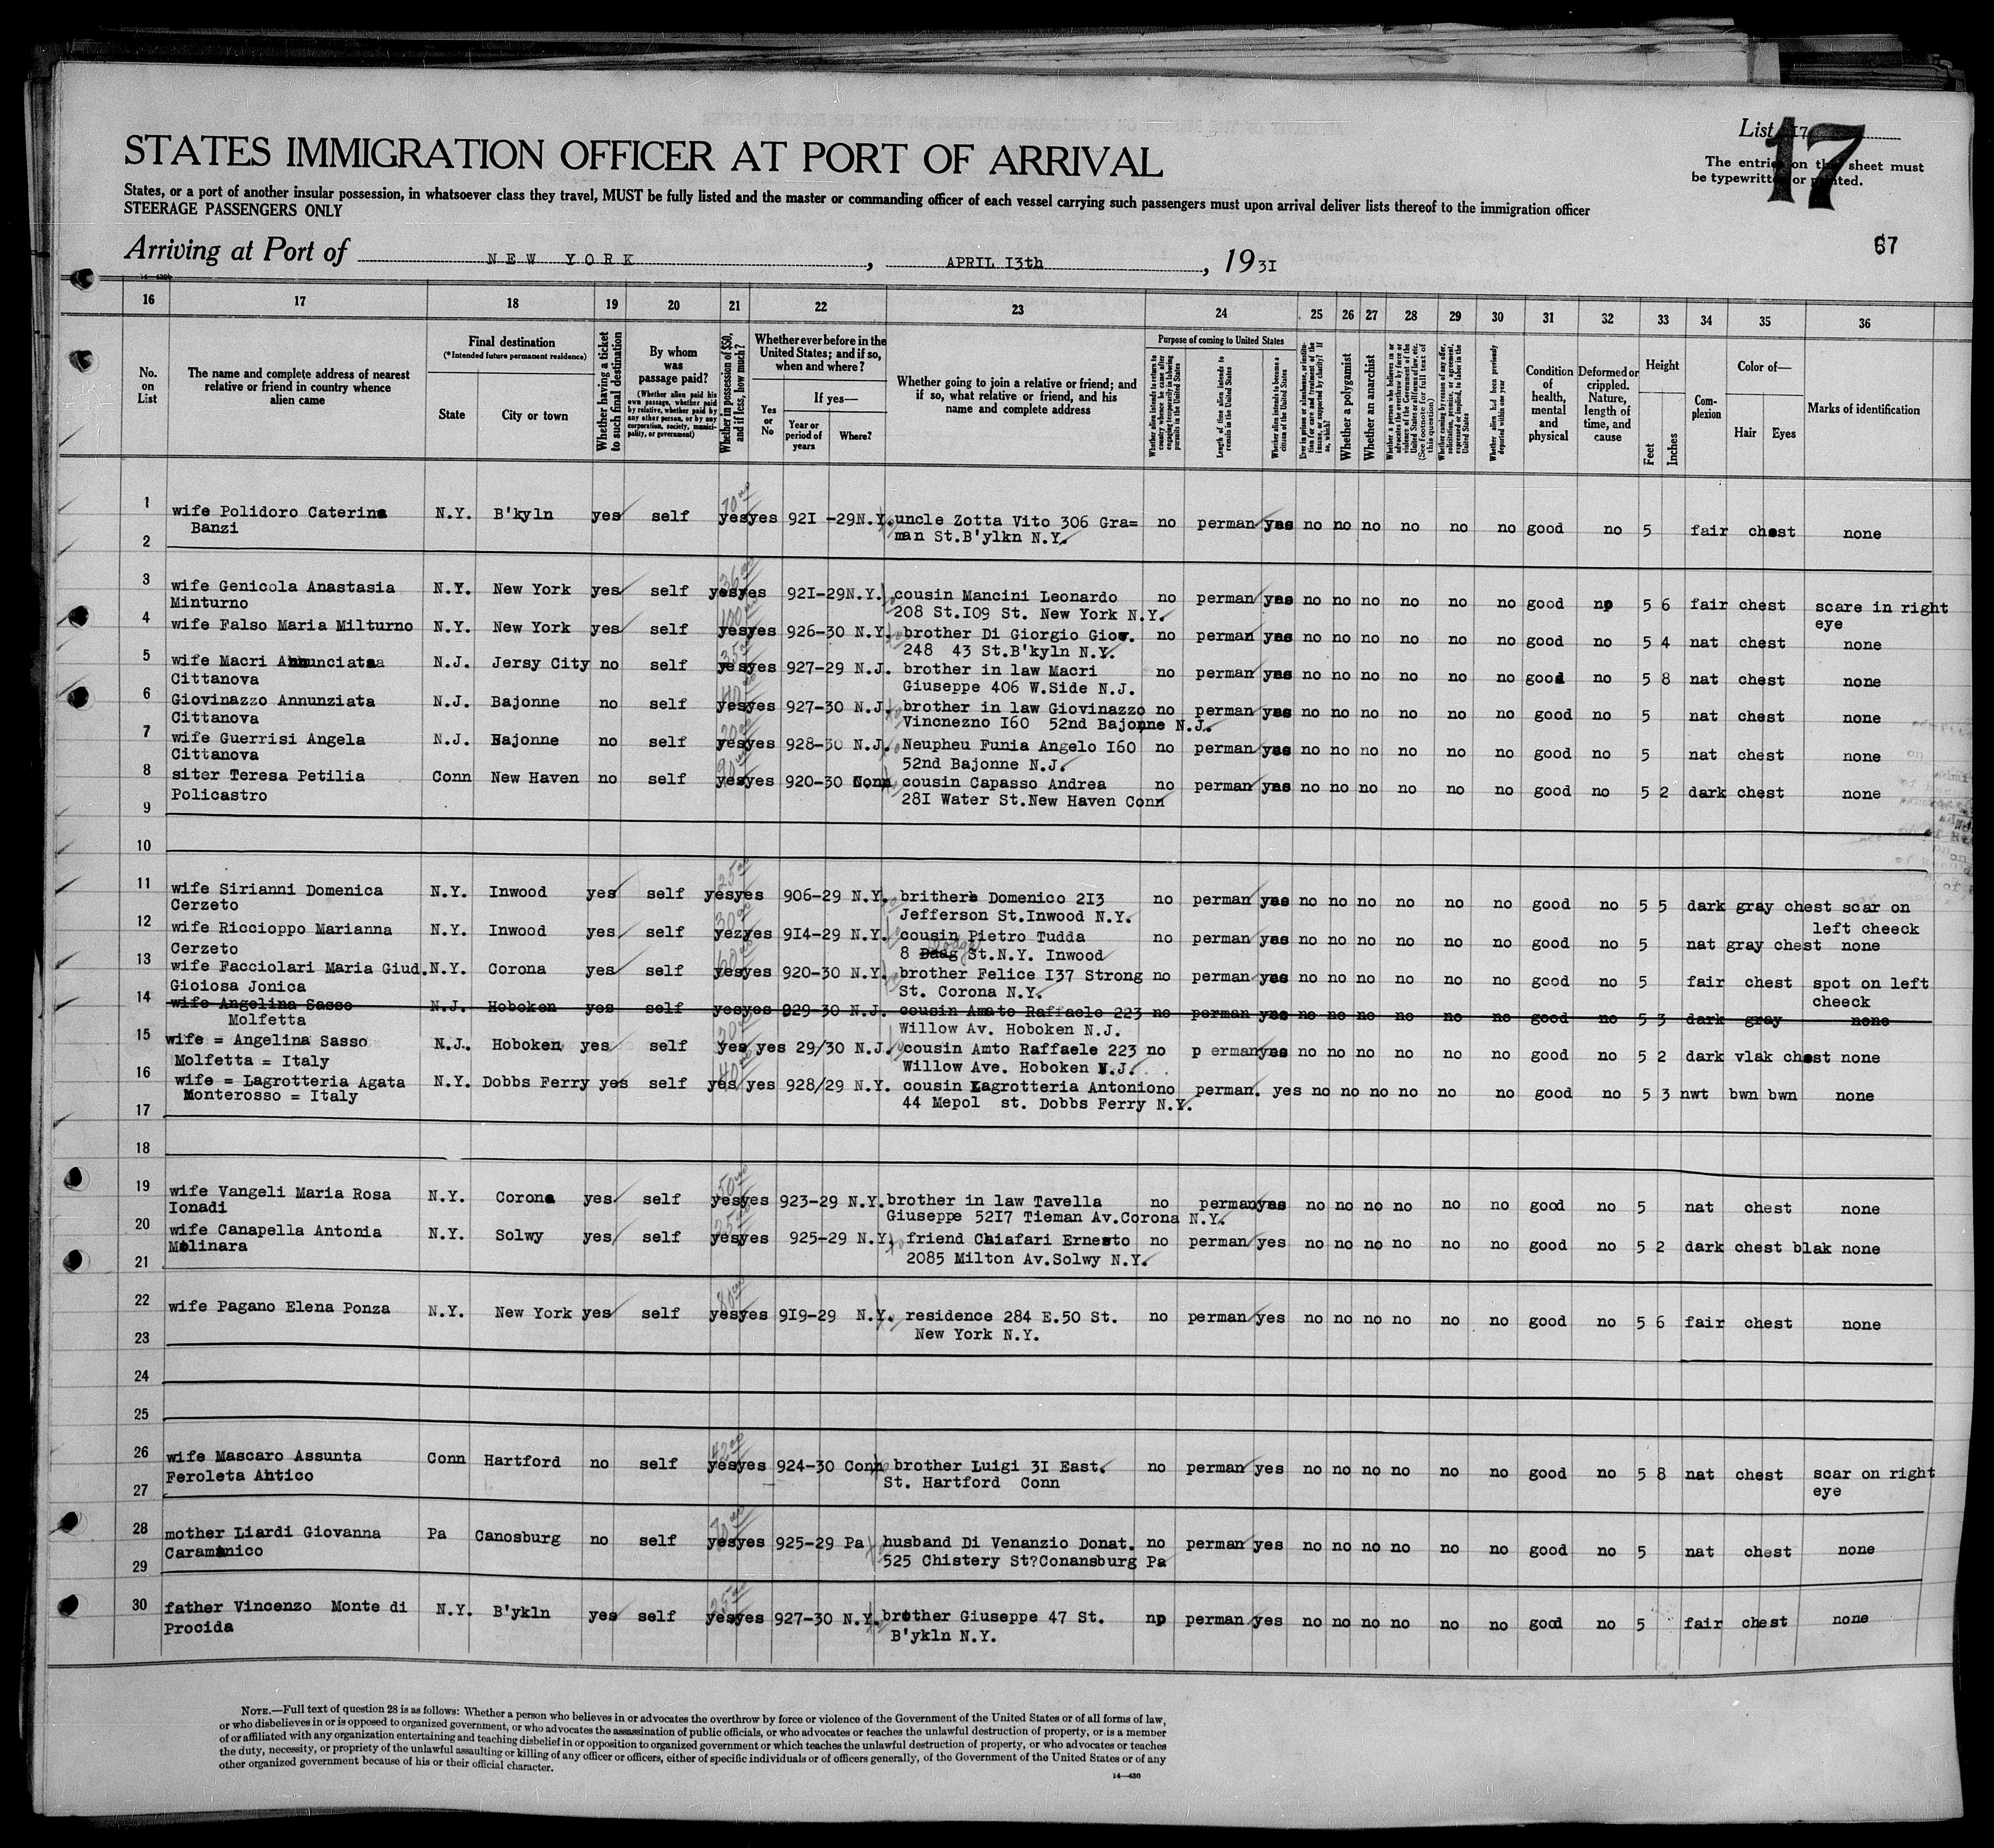 List 17
17
The entries on this sheet must
be typewritten or printed.
STATES IMMIGRATION OFFICER AT PORT OF ARRIVAL
States, or a port of another insular possession, in whatsoever class they travel, MUST be fully listed and the master or commanding officer of each vessel carrying such passengers must upon arrival deliver lists thereof to the immigration officer
STEERAGE PASSENGERS ONLY
67
Arriving at Port of NEW YORK, APRIL I3th, 1931
16 17 18 19 20 21 22 23 24 25 26 27 28 29 30 31 32 33 34 35 36
No. on List
The name and complete address of nearest relative or friend in country whence alien came
Final destination
(*Intended future permanent residence)
State
City or town
Whether having a ticket to such final destination
By whom was passage paid?
(Whether alien paid his own passage, whether paid by relative, whether paid by any other person, or by any corporation, society, municipality, or government)
Whether in possession of $50, and if less, how much?
Whether ever before in the United States; and if so, when and where?
Yes or No
If yes—
Year or period of years
Where?
Whether going to join a relative or friend; and if so, what relative or friend, and his name and complete address
Purpose of coming to United States
Whether alien intends to return to country whence he came after engaging temporarily in laboring pursuits in the United States
Length of time alien intends to remain in the United States
Whether alien intends to become a citizen of the United States
Ever in prison or almshouse, or institution for care and treatment of the insane, or supported by charity? If so, which?
Whether a polygamist
Whether an anarchist
Whether a person who believes in or advocates the overthrow by force or violence of the Government of the United States or all forms of law, etc. (See footnote for full text of this question)
Whether coming by reason of any offer, solicitation, promise, or agreement, expressed or implied, to labor in the United States
Whether alien had been previously deported within one year
Condition of health, mental and physical
Deformed or crippled. Nature, length of time, and cause
Height
Feet
Inches
Complexion
Color of—
Hair
Eyes
Marks of identification
1 wife Polidoro Caterina N.Y. B'kyln yes self yes yes 92I -29 N.Y. uncle Zotta Vito 306 Gra= no perman yes no no no no no no good no 5 fair chest none
Banzi man St.B'ylkn N.Y.
2
3 wife Genicola Anastasia N.Y. New York yes self yes yes 92I-29 N.Y. cousin Mancini Leonardo no perman yes no no no no no no good no 5 6 fair chest scare in right
Minturno 208 St.I09 St. New York N.Y. eye
4 wife Falso Maria Milturno N.Y. New York yes self yes yes 926-30 N.Y. brother Di Giorgio Giov. no perman yes no no no no no no good no 5 4 nat chest none
248 43 St.B'kyln N.Y.
5 wife Macri Annunciata N.J. Jersy City no self yes yes 927-29 N.J. brother in law Macri no perman yes no no no no no no good no 5 8 nat chest none
Cittanova Giuseppe 406 W.Side N.J.
6 Giovinazzo Annunziata N.J. Bajonne no self yes yes 927-30 N.J. brother in law Giovinazzo no perman yes no no no no no no good no 5 nat chest none
Cittanova Vincnezno I60 52nd Bajonne N.J.
7 wife Guerrisi Angela N.J. Bajonne no self yes yes 928-30 N.J. Neupheu Funia Angelo I60 no perman yes no no no no no no good no 5 nat chest none
Cittanova 52nd Bajonne N.J.
8 siter Teresa Petilia Conn New Haven no self yes yes 920-30 Conn cousin Capasso Andrea no perman yes no no no no no no good no 5 2 dark chest none
Policastro 28I Water St.New Haven Conn
9
10
11 wife Sirianni Domenica N.Y. Inwood yes self yes yes 906-29 N.Y. britherb Domenico 2I3 no perman yes no no no no no no good no 5 5 dark gray chest scar on
Cerzeto Jefferson St.Inwood N.Y. left cheeck
12 wife Riccioppo Marianna N.Y. Inwood yes self yez yes 9I4-29 N.Y. cousin Pietro Tudda no perman yes no no no no no no good no 5 nat gray chest none
Cerzeto 8 Dadg St.N.Y. Inwood
13 wife Facciolari Maria Giud. N.Y. Corona yes self yes yes 920-30 N.Y. brother Felice I37 Strong no perman yes no no no no no no good no 5 fair chest spot on left
Gioiosa Jonica St. Corona N.Y. cheeck
14 wife Angelina Sasso N.J. Hoboken yes self yes yes 929-30 N.J. cousin Amato Raffaele 223 no perman yes no no no no no no good no 5 3 dark gray none
Molfetta Willow Av. Hoboken N.J.
15 wife = Angelina Sasso N.J. Hoboken yes self yes yes 29/30 N.J. cousin Amto Raffaele 223 no p erman yes no no no no no no good no 5 2 dark vlak chest none
Molfetta = Italy Willow Ave. Hoboken N.J.
16 wife = Lagrotteria Agata N.Y. Dobbs Ferry yes self yes yes 928/29 N.Y. cousin Lagrotteria Antonio no perman. yes no no no no no no good no 5 3 nwt bwn bwn none
Monterosso = Italy 44 Mepol st. Dobbs Ferry N.Y.
17
18
19 wife Vangeli Maria Rosa N.Y. Corona yes self yes yes 923-29 N.Y. brother in law Tavella no perman yes no no no no no no good no 5 nat chest none
Ionadi Giuseppe 52I7 Tieman Av.Corona N.Y.
20 wife Canapella Antonia N.Y. Solwy yes self yes yes 925-29 N.Y. friend Chiafari Ernesto no perman yes no no no no no no good no 5 2 dark chest blak none
Molinara 2085 Milton Av.Solwy N.Y.
21
22 wife Pagano Elena Ponza N.Y. New York yes self yes yes 9I9-29 N.Y. residence 284 E.50 St. no perman yes no no no no no no good no 5 6 fair chest none
New York N.Y.
23
24
25
26 wife Mascaro Assunta Conn Hartford no self yes yes 924-30 Conn brother Luigi 3I East. no perman yes no no no no no no good no 5 8 nat chest scar on right
Feroleta Antico St. Hartford Conn eye
27
28 mother Liardi Giovanna Pa Canosburg no self yes yes 925-29 Pa husband Di Venanzio Donat. no perman yes no no no no no no good no 5 nat chest none
Caramanico 525 Chistery St?Conansburg Pa
29
30 father Vincenzo Monte di N.Y. B'ykln yes self yes yes 927-30 N.Y. brother Giuseppe 47 St. no perman yes no no no no no no good no 5 fair chest none
Procida B'ykln N.Y.
NOTE.—Full text of question 28 is as follows: Whether a person who believes in or advocates the overthrow by force or violence of the Government of the United States or of all forms of law,
or who disbelieves in or is opposed to organized government, or who advocates the assassination of public officials, or who advocates or teaches the unlawful destruction of property, or is a member
of or affiliated with any organization entertaining and teaching disbelief in or opposition to organized government or which teaches the unlawful destruction of property, or who advocates or teaches
the duty, necessity, or propriety of the unlawful assaulting or killing of any officer or officers, either of specific individuals or of officers generally, of the Government of the United States or of any
other organized government because of his or their official character.
14—430